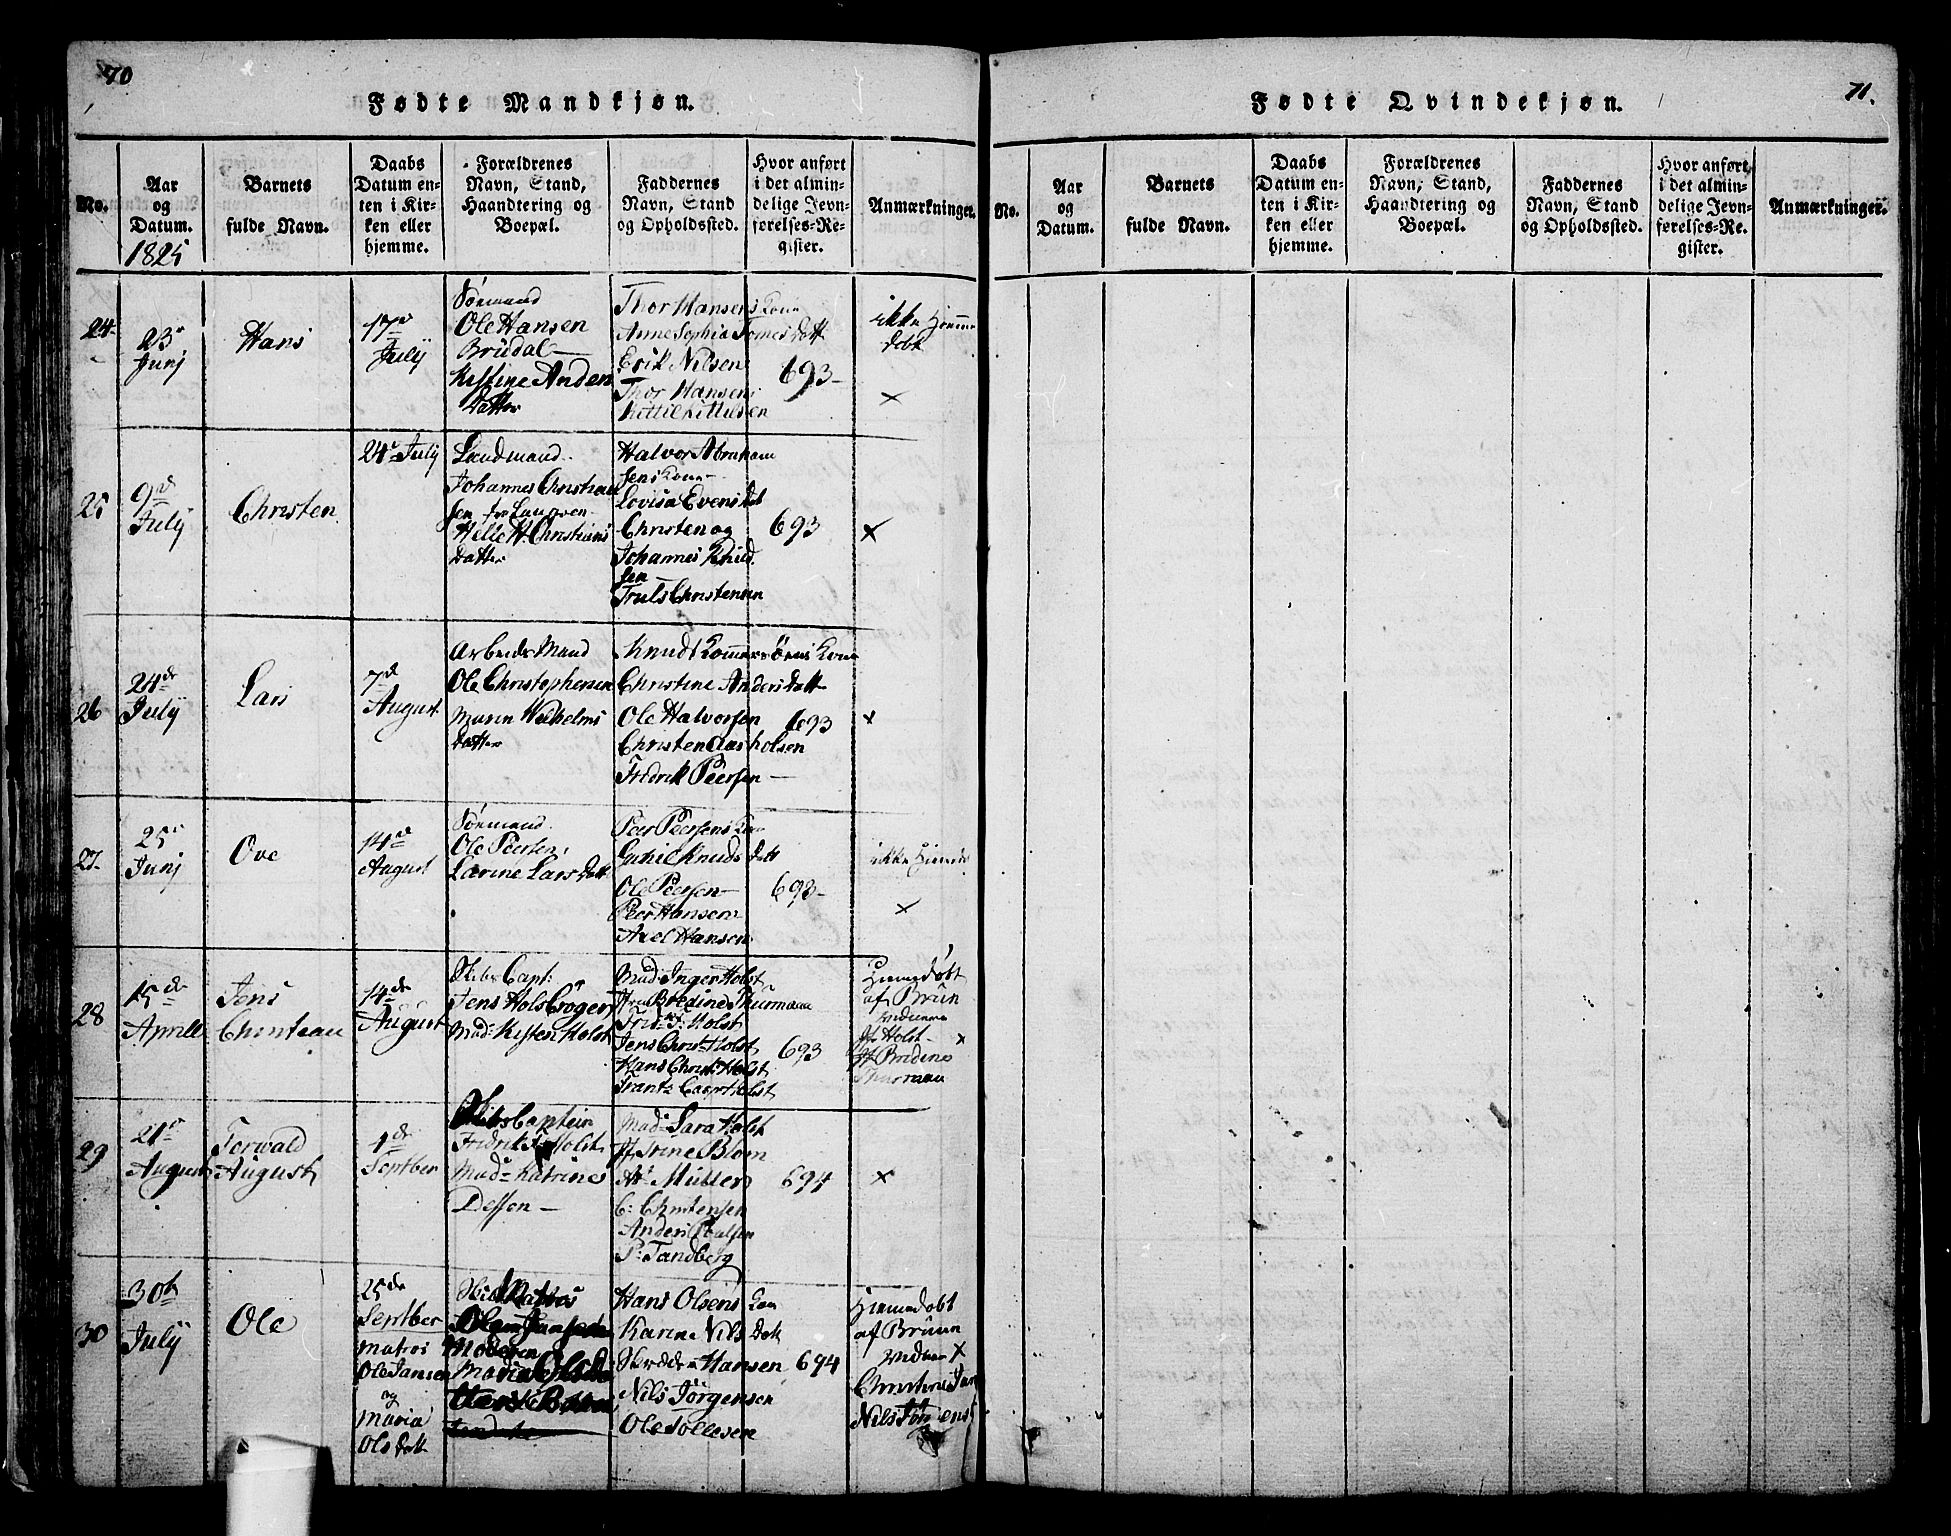 70
Fødte Mandkjøn.
No.
Aar
og
Datum.
1825
Barnets
fulde Navn.
Daabs
Datum en-
ten i Kir-
ken eller
hjemme.
Forældrenes
Navn, Stand,
Haandtering og
Boepæl.
Faddernes
Navn, Stand
og Opholdssted.
Hvor anført
i det almin-
delige Jevn-
førelses-Re-
gister.
Anmærkninger.
24
23
Junj
Hans
17de
Julÿ
Sömand
Ole Hansen
Brudal
Kistine Anders
Datter
Thor Hansens Kone
Anne Sophia Tomes datt
Erik Nilsen
Thor Hansen
Kittil Kittelsen
693
ikke Hjemme
døbt
×
25
9de
Julÿ
Christen
24 Julÿ
Landmand
Johannes Christian
sen fra
Christians
datter
Halvor Abraham
sens Kone
Lovisa Evens dat
Christen og
Johannes Knud
sen
Truls Christensen
693
×
26
24de
Julÿ
Lars
7de
August
Arbeids Mand
Ole Christophersen
Maren Wilhelms
datter
Knudt Kone
Christine Anders datt
Ole Halvorsen
Christen Aasholsen
Fridrik Peersen
693
×
27.
25
Junj
Ove
14de
August
Sömand
Ole Peersen
Larine Lars datt
Peer Peersens Kone
Knuds datt
Ole Peersen
Peer Hansen
Axel Hansen
693
ikke
×
28
15de
Aprill
Jens
Christian
14de
August
Skibs Capt:
Jens Hols Cröger
Mad: Kisten Holst
Mad: Inger Holst
Bredine Thurmann
Frid: Holst
Jens Christ: Holst
Hans Christ: Holst
Frants Casper Holst
693
Hiemedöbt
af Brün
vidnere
Jf Holst
Jf Bredine
Thurman
×
29
21
August
Torwald
August
4de
Septber
Skibs Captein
Fridrik Holst
Mad: Katrine
Dessen
Mad: Sara Holst
Jf Trine Blom
Müller
C: Christensen
Anders Paulsen
P: Tandberg
694
×
30
30te
Julÿ
Ole
25de
Septber
Matros
Ole Jansen
og
Maria
Ols datt
Moderen
Maria
Hans Olsens Kone
Karine Nils datt
Hansen
Nils Jörgensen
Ole Tollesen
694
Hiemedøbt
af Brüün
vidner ×
Christine
Nils Jörgens
71.
Fødte Qvindekjøn.
No.
Aar
og
Datum.
Barnets
fulde Navn.
Daabs
Datum en-
ten i Kir-
ken eller
hjemme.
Forældrenes
Navn, Stand,
Haandtering og
Boepæl.
Faddernes
Navn, Stand
og Opholdssted.
Hvor anført
i det almin-
delige Jevn-
førelses-Re-
gister.
Anmærkninger.